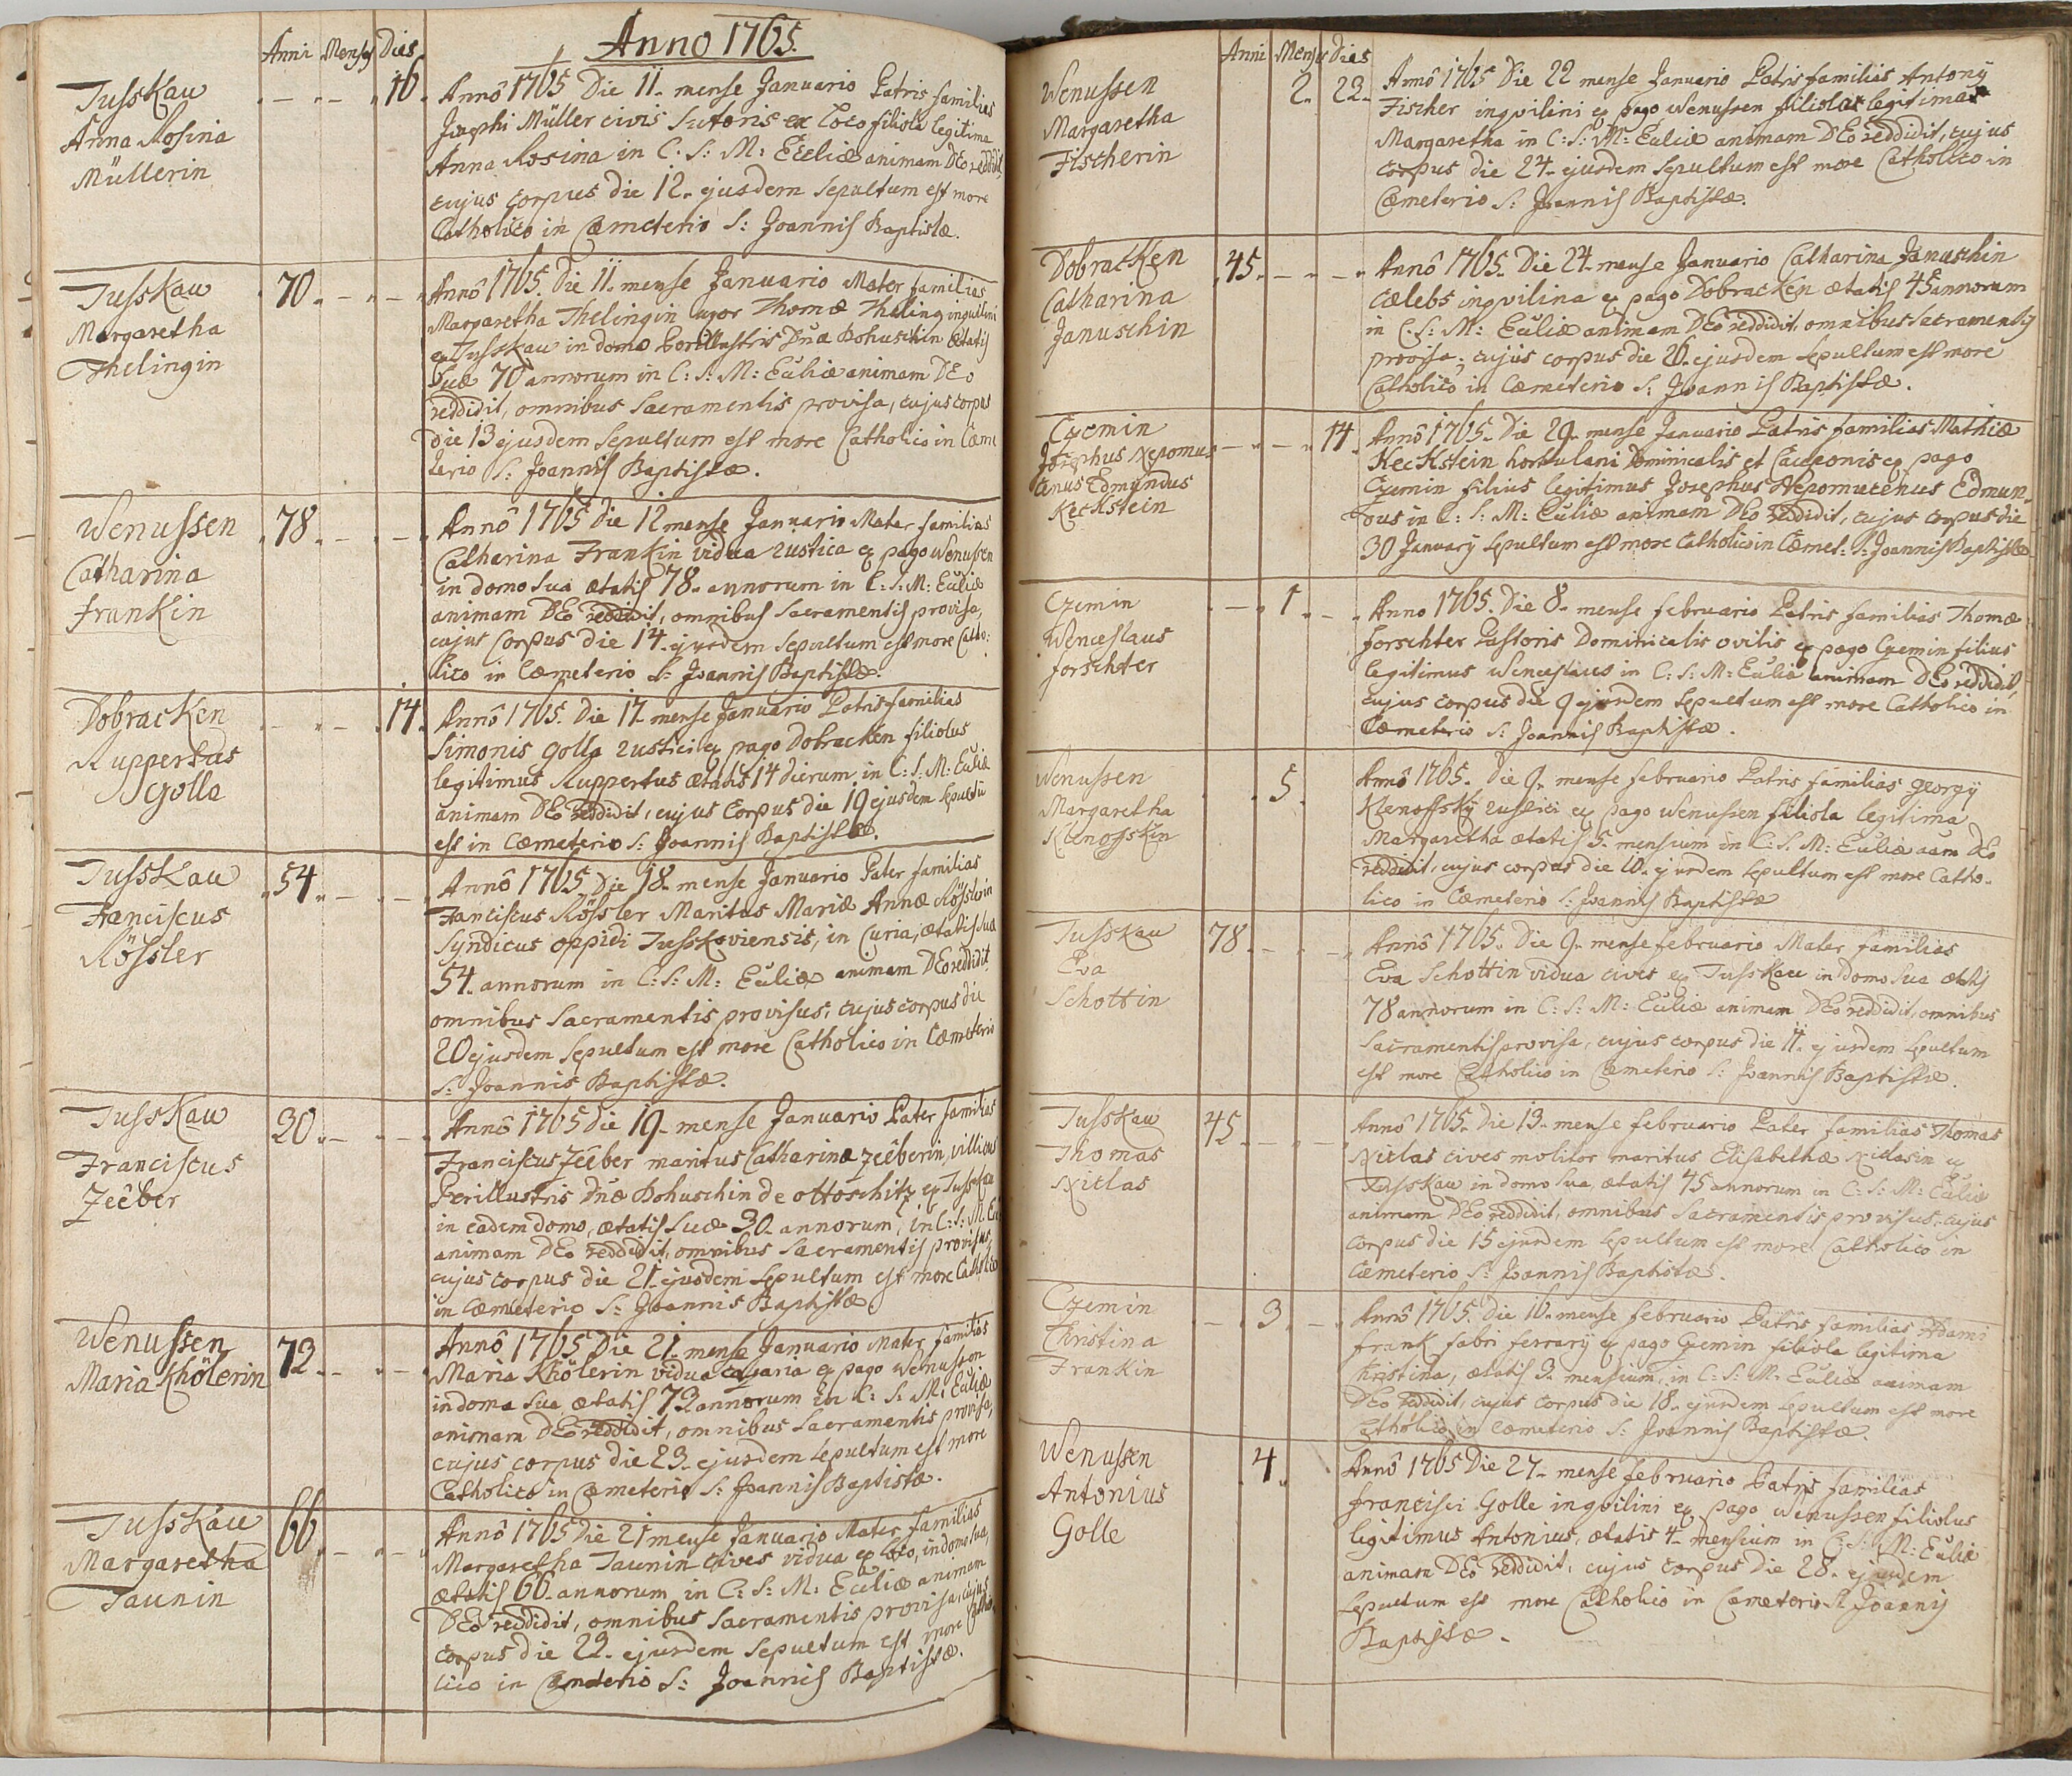 Anno 1765.
Anni Menses Dies
Tussкau
Anna Rosina
Müllerin
16.
Annô 1765 Die 11. mense Januario Patris familias
Josephi Müller civis Sutoris ex Loco filiola legitima
Anna Rosina in C: S: M: Ecclię animam DEo reddidit,
cujus corpus die 12. ejusdem sepultum est more
Catholico in Cæmeterio S: Joannis Baptistæ.
Tusskau
Margaretha
Thelingin
70.
Annô 1765. Die 11. mense Januario Mater familias
Margaretha Thelingin uxor Thomæ Theling inquilini
ex Tusskau in domo Perillustris Dnæ Bohuschin ætatis
suæ 70 annorum in C: S: M: Eulię animam DEo
reddidit, omnibus sacramentis provisa, cujus corpus
die 13 ejusdem sepultum est more Catholico in Cæme
terio S: Joannis Baptistæ.
Wenussen
Catharina
Frankin
78.
Annô 1765 Die 12 mense Januario Mater familias
Catharina Frankin vidua rustica ex pago Wenussen
in domo sua ætatis 78. annorum in C: S: M: Eulię
animam DEo reddidit, omnibus sacramentis provisa,
cujus corpus die 14. ejusdem sepultum est more Catho:
lico in Cæmeterio S: Joannis Baptistæ.
Dobracken
Ruppertus
Golla
14.
Annô 1765. Die 17. mense Januario Patris familias
Simonis Golla rustici ex pago Dobracken filiolus
legitimus Ruppertus ætatis 14 dierum in C: S: M: Eulię
animam DEo reddidit, cujus corpus die 19 ejusdem sepultū
est in Cæmeterio S: Joannis Baptistæ.
Tusskau
Franciscus
Rössler
54.
Annô 1765 Die 18. mense Januario Pater familias
Franciscus Rössler Maritus Mariæ Annæ Rösslerin
Syndicus oppidi Tusskoviensis, in Curia, ætatis suæ
54. annorum in C: S: M: Eulię animam DEo reddidit
omnibus sacramentis provisus, cujus corpus die
20 ejusdem sepultum est more Catholico in Cæmeterio
S: Joannis Baptistæ.
Tusskau
Franciscus
Zeêber
30.
Annô 1765 Die 19. mense Januario Pater familias
Franciscus Zeêber maritus Catharinæ Zeêberin, villicus
Perillustris Dnæ Bohuschin de Ottoschitz ex Tusskau
in eadem domo, ætatis suæ 30. annorum, in C: S: M: Eu
animam DEo reddidit, omnibus sacramentis provisus,
cujus corpus die 21. ejusdem sepultum est more Catholico
in Cæmeterio S: Joannis Baptistæ
Wenussen
Maria Khölerin
73.
Annô 1765 Die 21. mense Januario Mater familias
Maria Khölerin vidua casaria ex pago Wenussen
in domo sua ætatis 73 annorum in C: S: M: Eulię
animam DEo reddidit, omnibus sacramentis provisa,
cujus corpus die 23. ejusdem sepultum est more
Catholico in Cæmeterio S: Joannis Baptistæ.
Tusskau
Margaretha
Taunin
66.
Annô 1765 Die 21 mense Januario Mater familias
Margaretha Taunin cives vidua ex loco, in domo sua,
ætatis 66. annorum in C: S: M: Eculię animam
DEo reddidit, omnibus sacramentis provisa, cujus
corpus die 22. ejusdem sepultum est more Catho
lico in Cæmeterio S: Joannis Baptistæ.
Anni Menses Dies
Wenussen
Margaretha
Fischerin
2. 22.
Annô 1765 Die 22 mense Januario Patris familias Antony
Fischer inqvilini ex pago Wenussen filiola legitima
Margaretha in C: S: M: Eulię animam DEo reddidit, cujus
corpus die 24. ejusdem sepultum est more Catholico in
Cæmeterio S: Joannis Baptistæ.
Dobracken
Catharina
Januschin
45.
Annô 1765. Die 24. mense Januario Catharina Januschin
cælebs inqvilina ex pago Dobracken ætatis 45 annorum
in C: S: M: Eulię animam DEo reddidit, omnibus sacramentis
provisa, cujus corpus die 26. ejusdem sepultum est more
Catholico in Cæmeterio S: Joannis Baptistæ.
Czemin
Josephus Nepomu-
cenus Edmundus
Keckstein
14.
Annô 1765. Die 29. mense Januario Patris familias Mathiæ
Keckstein hortulani Dominicalis et Cauponis ex pago
Czemin filius legitimus Josephus Nepomucenus Edmun-
dus in C: S: M: Eulię animam DEo reddidit, cujus corpus die
30 January sepultum est more Catholico in Cæmet: S: Joannis Baptistæ
Czemin
Wenceslaus
Forschter
1.
Anno 1765. Die 8. mense Februario Patris familias Thomæ
Forschter Pastoris Dominicalis ovilis ex pago Czemin filius
legitimus Wenceslaus in C: S: M: Eulię animam DEo reddidit,
cujus corpus die 9 ejusdem sepultum est more Catholico in
Cæmeterio S: Joannis Baptistæ.
Wenussen
Margaretha
Klenoffskin
5.
Annô 1765. Die 9. mense Februario Patris familias Georgy
Klenoffsky rustici ex pago Wenussen filiola legitima
Margaretha ætatis 5. mensium in C: S: M: Eulię aam DEo
reddidit, cujus corpus die 10. ejusdem sepultum est more Catho-
lico in Cæmeterio S: Joannis Baptistæ
Tusskau
Eva
Schottin
78.
Annô 1765. Die 9. mense Februario Mater familias
Eva Schottin vidua cives ex Tusskau in domo sua ætatis
78 annorum in C: S: M: Eulię animam DEo reddidit, omnibus
sacramentis provisa, cujus corpus die 11. ejusdem sepultum
est more Catholico in Cæmeterio S: Joannis Baptistæ.
Tusskau
Thomas
Niclas
45.
Annô 1765. Die 13. mense Februario Pater familias Thomas
Niclas cives molitor maritus Elisabethæ Niclasin ex
Tusskau in domo sua, ætatis 45 annorum in C: S: M: Eulię
animam DEo reddidit, omnibus sacramentis provisus, cujus
corpus die 15 ejusdem sepultum est more Catholico in
Cæmeterio S: Joannis Baptistæ.
Czemin
Christina
Frankin
3.
Annô 1765. Die 16. mense Februario Patris familias Adami
Frank fabri ferrary ex pago Czemin filiola legitima
Christina, ætatis 3. mensium, in C: S: M: Eulię animam
DEo reddidit, cujus corpus die 18. ejusdem sepultum est more
Catholico in Cæmeterio S: Joannis Baptistæ
Wenussen
Antonius
Golle
4.
Annô 1765 Die 27. mense Februario Patris familias
Francisci Golle inqvilini ex pago Wenussen filiolus
legitimus Antonius, ætatis 4. mensium in C: S: M: Eulię
animam DEo reddidit, cujus corpus die 28. ejusdem
sepultum est more Catholico in Cæmeterio S: Joannis
Baptistæ.